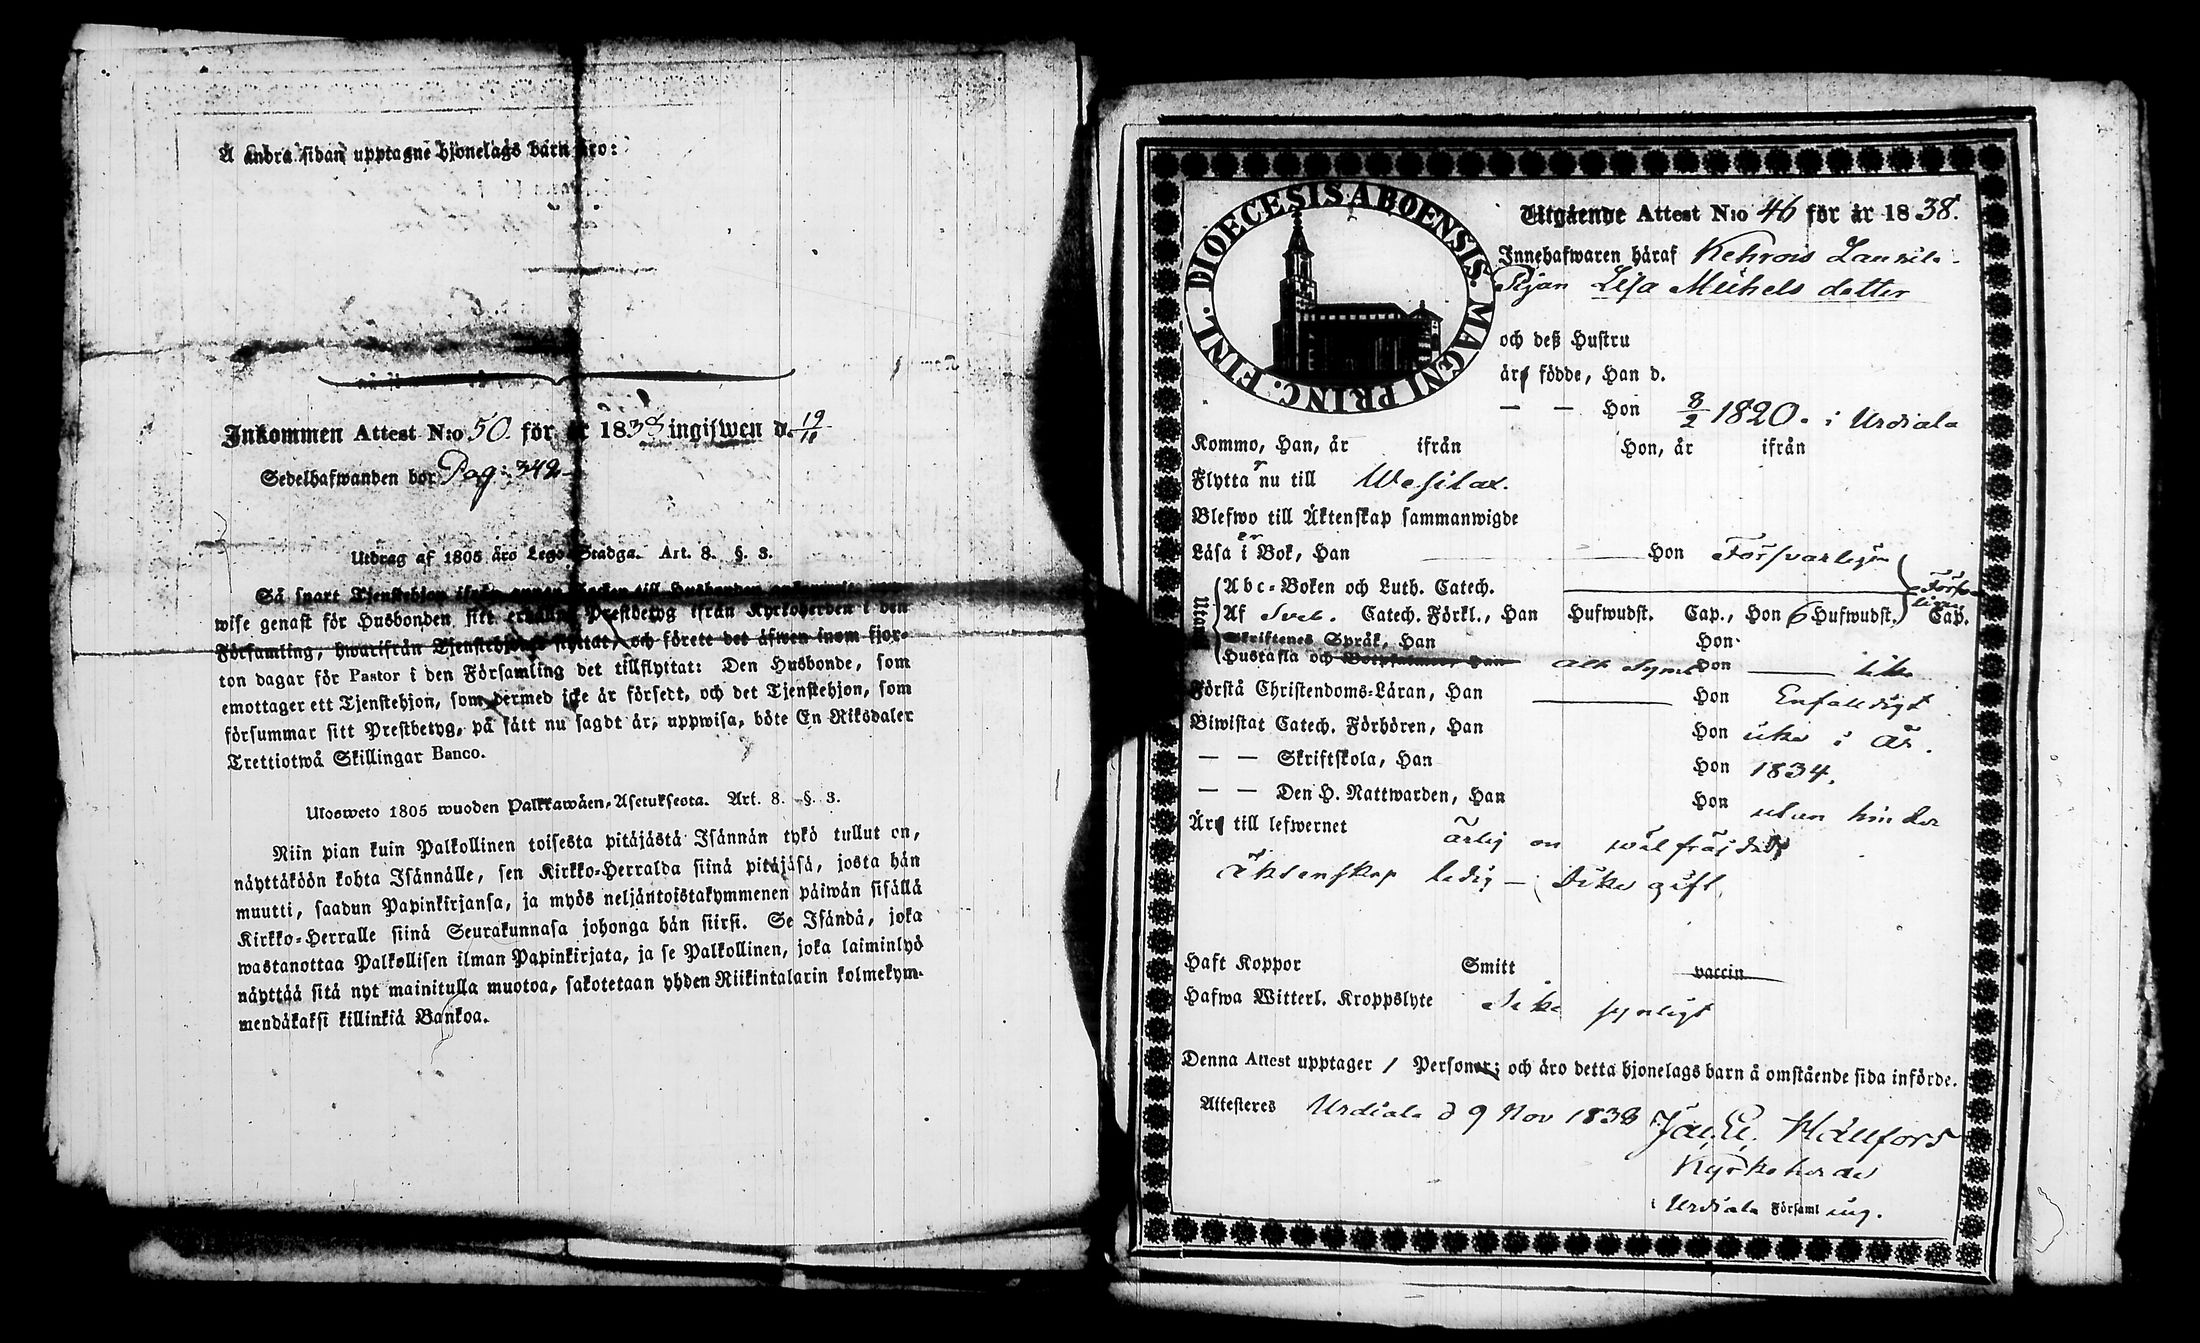 Å andra sidan upptagne hjonelags barn äro:
Inkommen Attest N:o 50. för år 1838 ingifwen d. 19/11
Sedelhafwanden bor Pag: 342
Utdrag af 1805 års Lego-Stadga. Art. 8. §. 3.
Så snart Tjenstehjon ifrån annan till Husbonden
wise genast för Husbonden sitt Prestbetyg ifrån Kyrkoherden i den
Församling, hwarifrån Tjenstehjonet flyttat, och förete det äfwen inom fjor-
ton dagar för Pastor i den Församling det tillflyttat: Den Husbonde, som
emottager ett Tjenstehjon, som dermed icke är försedt, och det Tjenstehjon, som
försummar sitt Prestbetyg, på sätt nu sagdt är, uppwisa, böte En Riksdaler
Trettiotwå Skillingar Banco.
Ulosweto 1805 wuoden Palkkawäen-Asetuksesta. Art. 8. §. 3.
Niin pian kuin Palkollinen toisesta pitäjästä Isännän tykö tullut on,
näyttäköön kohta Isännälle, sen Kirkko-Herralda siinä pitäjäsä, josta hän
muutti, saadun Papinkirjansa, ja myös neljäntoistakymmenen päiwän sisällä
Kirkko-Herralle siinä Seurakunnasa johonga hän siirsi. Se Isändä, joka
wastanottaa Palkollisen ilman Papinkirjata, ja se Palkollinen, joka laiminlyö
näyttää sitä nyt mainitulla muotoa, sakotetaan yhden Riikintalarin kolmekym-
mendäkaksi killinkiä Bankoa.
DIOECESIS ABOENSIS. MAGNI PRINC. FINL.
Utgående Attest N:o 46 för år 1838.
Innehafwaren häraf Kehrois Laurila
Pigan Lisa Michels dotter
och deß Hustru
är födde, Han d.
— — Hon 8/2 1820. i Urdiala
Kommo, Han, år ifrån Hon, år ifrån
Flyttar nu till Wesilax.
Blefwo till Äktenskap sammanwigde
Läsa i Bok, Han Hon Försvarligen
Utan
Abc-Boken och Luth. Catech. Försvarligen
Af Sveb. Catech. Förkl., Han Hufwudst. Cap., Hon 6 Hufwudst. Cap.
Skriftenes Språk, Han Hon
Hustafla och Botpsalmer, Han Ath. Symb. Hon lika
Förstå Christendoms-Läran, Han Hon Enfaldigt
Biwistat Catech. Förhören, Han Hon icke i år.
— — Skriftskola, Han Hon 1834.
— — Den H. Nattwarden, Han Hon utan hinder
Är till lefwernet ärlig oc wälfräjdad,
äktenskap ledig — icke gift
Haft Koppor Smitt vaccin
Hafwa Witterl. Kroppslyte Icke synligt
Denna Attest upptager 1 Personer; och äro detta hjonelags barn å omstående sida införde.
Attesteres Urdiala d 9 Nov 1838 Hällfors
Kyrkoherde
i Urdiala Församling.